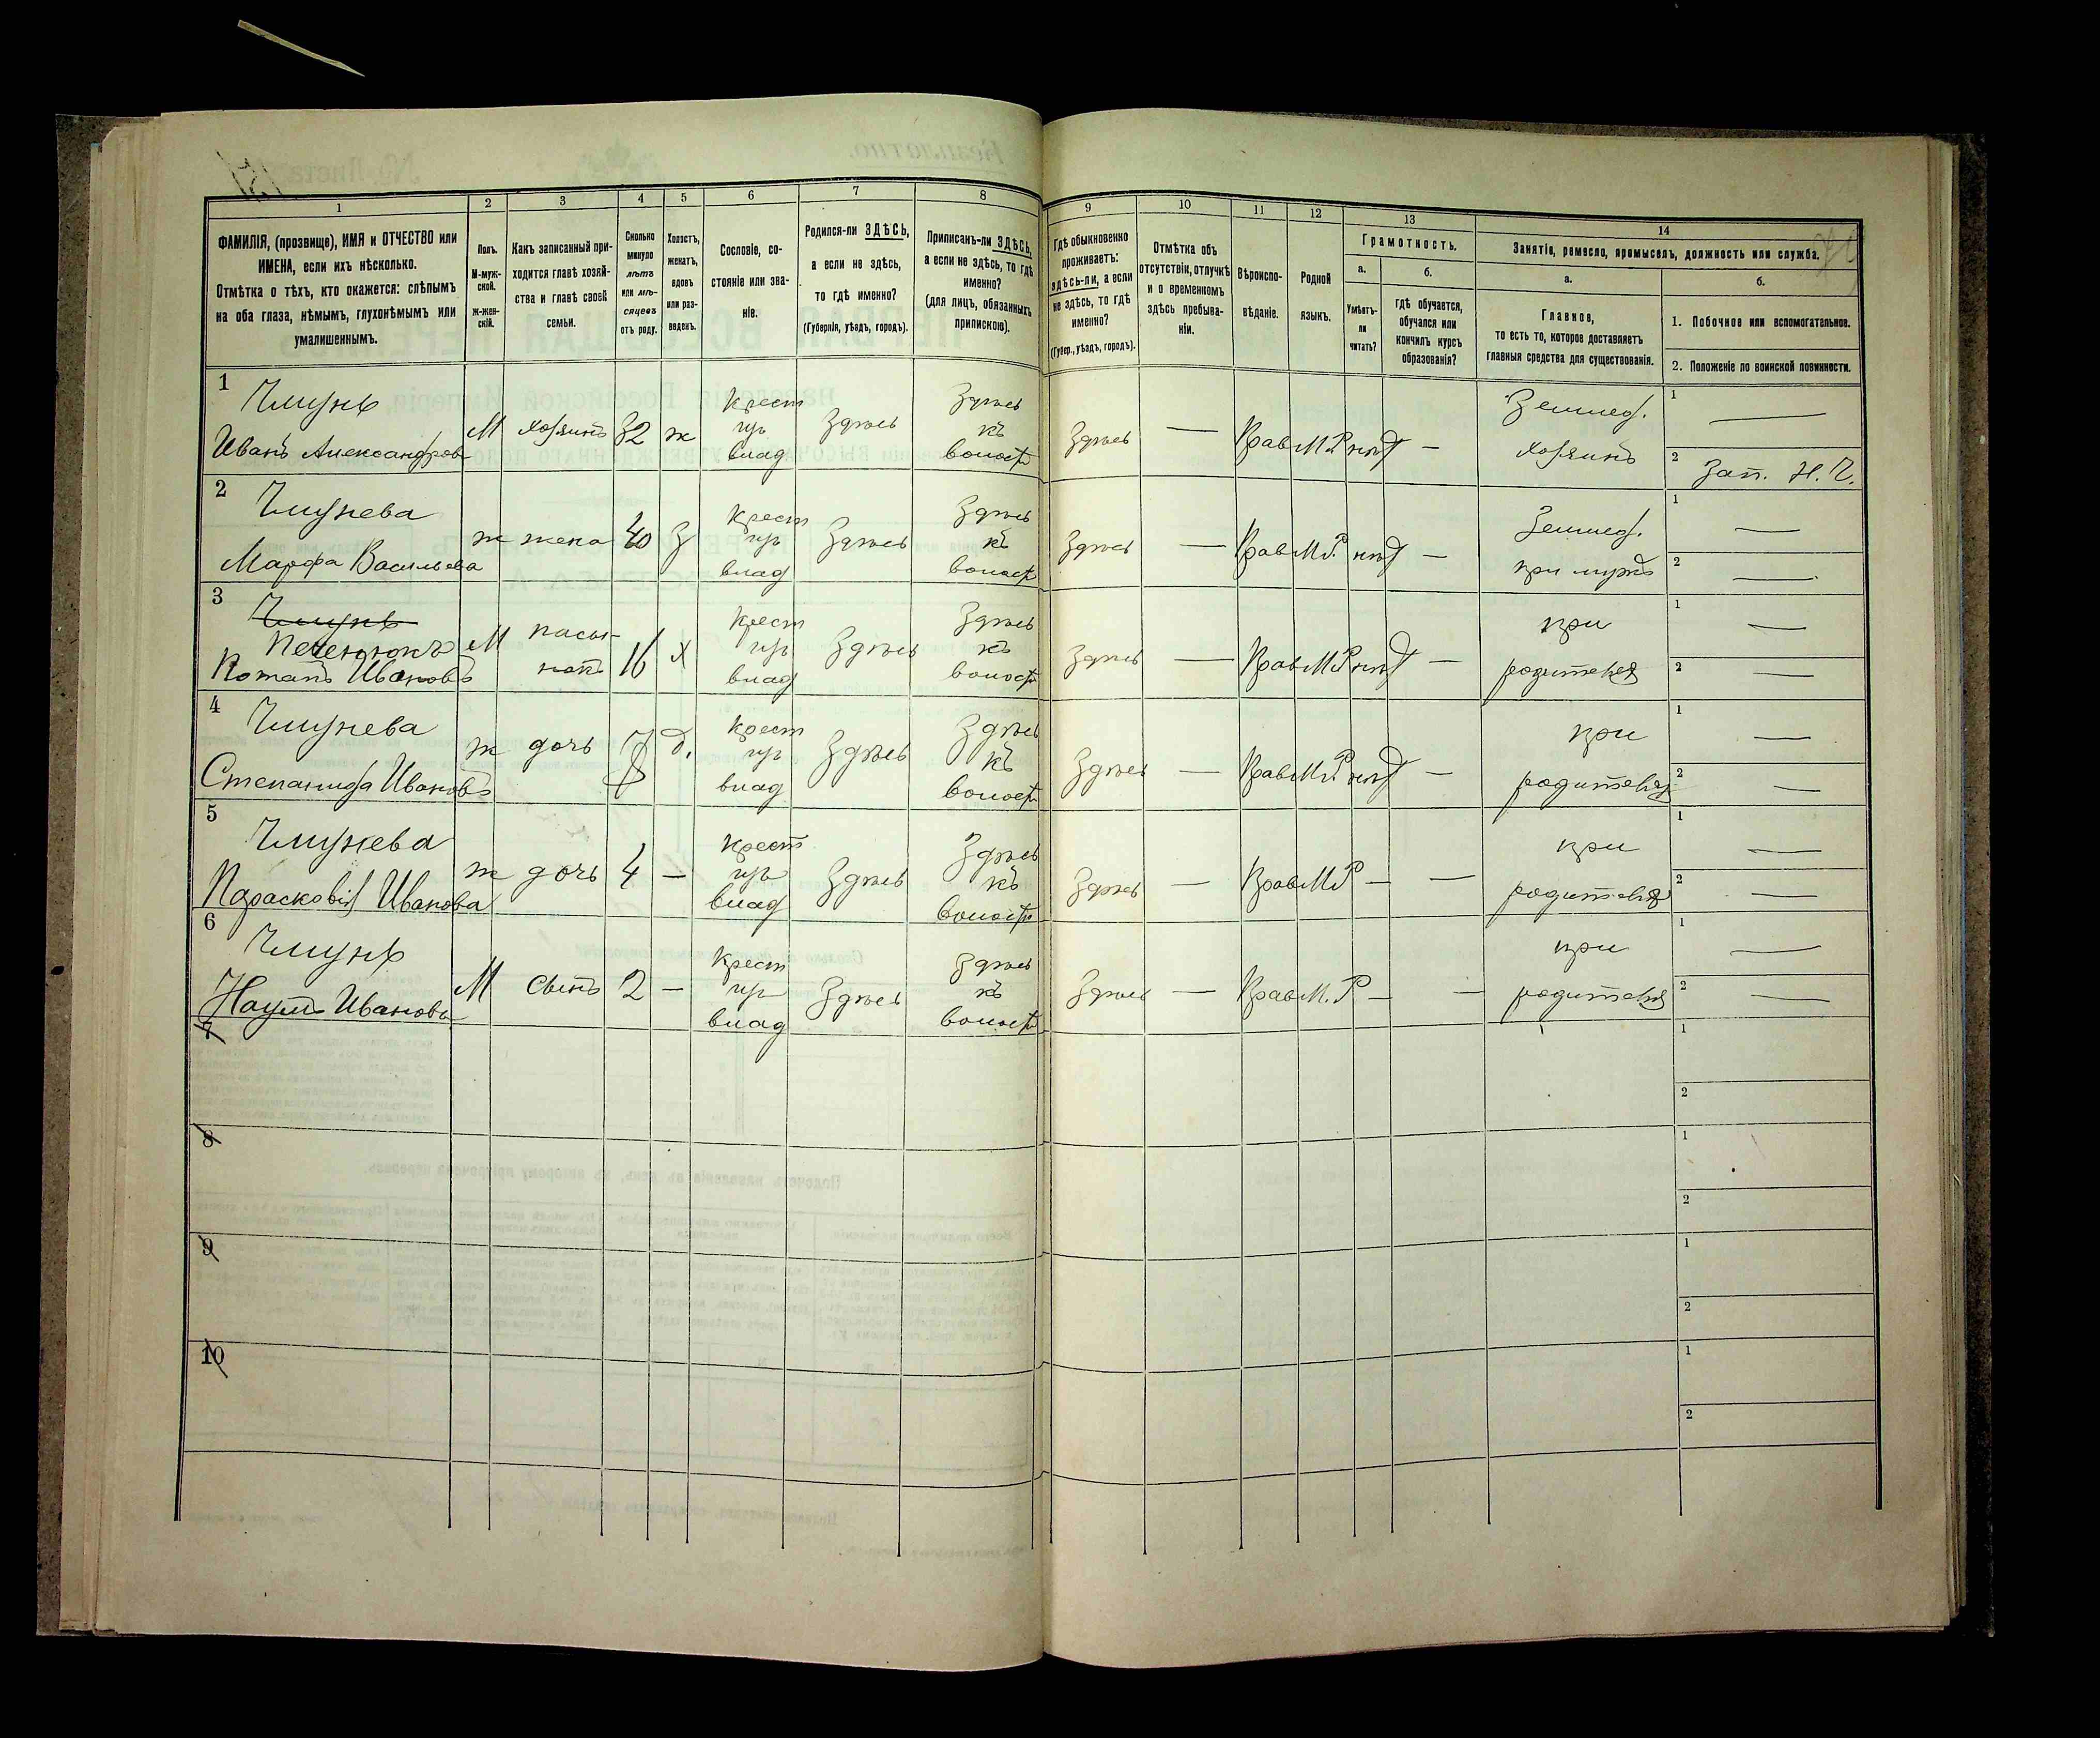 1 2 3 4 5 6 7 8 9 10 11 12 13 14
ФАМИЛІЯ, (прозвище), ИМЯ и ОТЧЕСТВО или
ИМЕНА, если ихъ нѣсколько.
Отмѣтка о тѣхъ, кто окажется: слѣпымъ
на оба глаза, нѣмымъ, глухонѣмымъ или
умалишеннымъ.
Полъ.
М-муж-
ской.
Ж-жен-
скій.
Какъ записанный при-
ходится главѣ хозяй-
ства и главѣ своей
семьи.
Сколько
минуло
лѣтъ
или мѣ-
сяцевъ
отъ роду.
Холостъ,
женатъ,
вдовъ
или раз-
веденъ.
Сословіе, со-
стояніе или зва-
ніе.
Родился-ли ЗДѢСЬ,
а если не здѣсь,
то гдѣ именно?
(Губернія, уѣздъ, городъ).
Приписанъ-ли ЗДѢСЬ,
а если не здѣсь, то гдѣ
именно?
(для лицъ, обязанныхъ
припискою).
Гдѣ обыкновенно
проживаетъ:
здѣсь-ли, а если
не здѣсь, то гдѣ
именно?
(Губер., уѣздъ, городъ).
Отмѣтка объ
отсутствіи, отлучкѣ
и о временномъ
здѣсь пребыва-
ніи.
Вѣроиспо-
вѣданіе.
Родной
языкъ.
Грамотность.
а.
Умѣетъ-
ли
читать?
б.
гдѣ обучается,
обучался или
кончилъ курсъ
образованія?
Занятіе, ремесло, промыселъ, должность или служба.
а.
Главное,
то есть то, которое доставляетъ
главныя средства для существованія.
б.
1. Побочное или вспомогательное.
2. Положеніе по воинской повинности.
1
Иванъ Александровъ
М хозяинъ 32 ж
Крест
влад
Здѣсь
Здѣсь
къ
волости
Здѣсь — Прав М.Р нѣт —
Землед.
хозяинъ
1 —
2 Зап. Н. Ч.
2
Марфа Васильева
ж жена 40 З
Крест
влад
Здѣсь
Здѣсь
къ
волости
Здѣсь — Прав М.Р. нѣт —
Землед.
при мужѣ
1 —
2 —
3
Иванов
М пасын-
нокъ 16 Х
Крест
влад
Здѣсь
Здѣсь
къ
волости
Здѣсь — Прав М.Р нѣт —
при
родителях
1 —
2 —
4
Степанида Иванов
ж дочь д.
Крест
влад
Здѣсь
Здѣсь
къ
волости
Здѣсь — Прав М.Р нѣт —
при
родителях
1 —
2 —
5
Парасковія Иванова
ж дочь 4 —
Крест
влад
Здѣсь
Здѣсь
къ
волости
Здѣсь — Прав М.Р — —
при
родителях
1 —
2 —
6
Наумъ Ивановъ
М сынъ 2 —
Крест
влад
Здѣсь
Здѣсь
къ
волости
Здѣсь — Прав М.Р — —
при
родителях
1 —
2 —
7
1
2
8
1
2
9
1
2
10
1
2